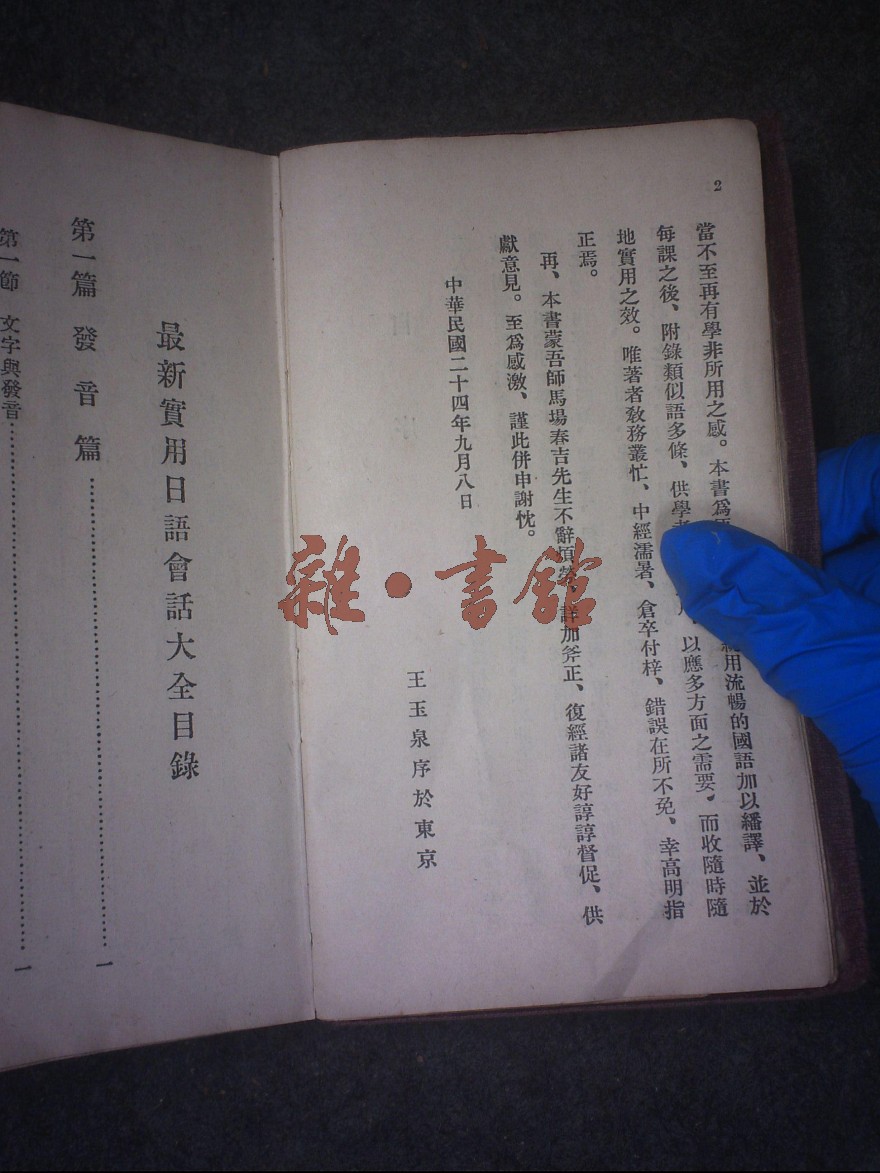 2
當不至再有學非所用之感。本書爲用流暢的國語加以繙譯、並於
每課之後、附錄類似語多條、供學以應多方面之需要，而收隨時隨
地實用之效。唯著者教務叢忙、中經濡暑、倉卒付梓、錯誤在所不免、幸高明指
正焉。
再、本書蒙吾師馬場春吉先生不辭煩詳加斧正、復經諸友好諄諄督促、供
獻意見。至爲感激、謹此併申謝忱。
中華民國二十四年九月八日
王玉泉序於東京
最新實用日語會話大全目錄
第一篇 發音篇……………………一
第一節 文字與發音……………………一
雜·書館